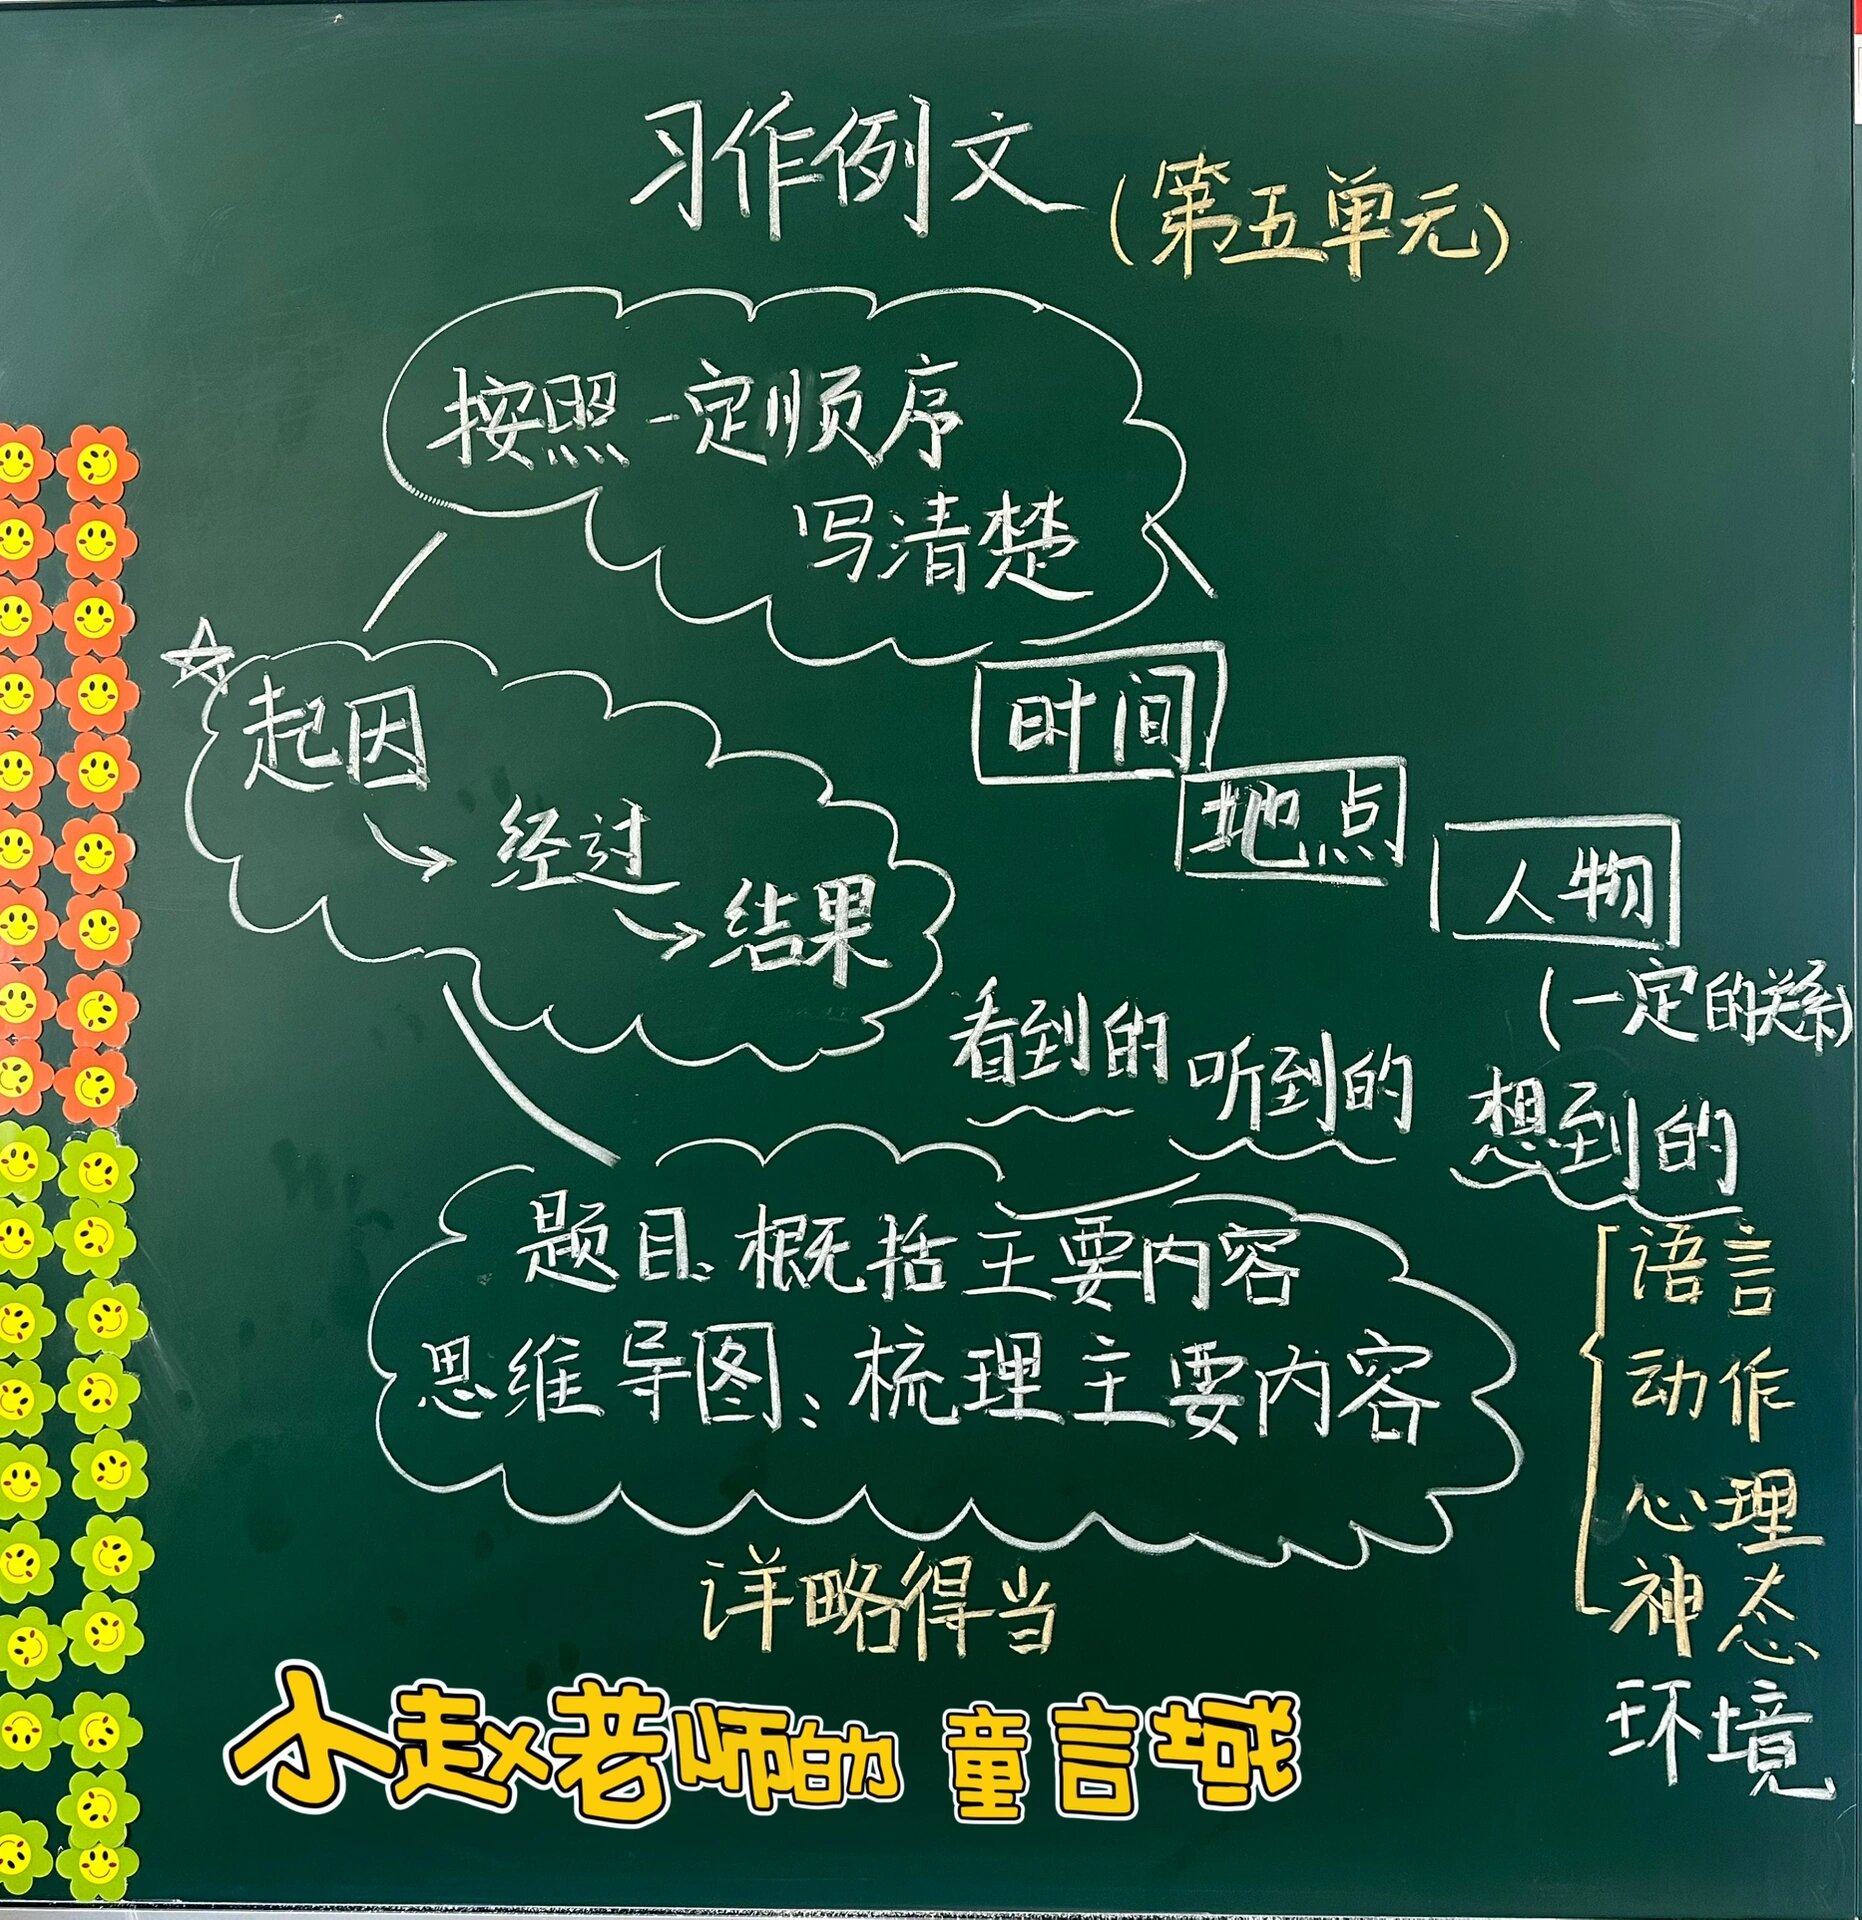 习作例文
(第五单元)
按照一定顺序
写清楚
起因
→经过
→结果
时间
地点
人物
(一定的关系)
看到的
听到的
想到的
题目:概括主要内容
思维导图:梳理主要内容
语言
动作
心理
神态
环境
详略得当
小赵老师的 童言域